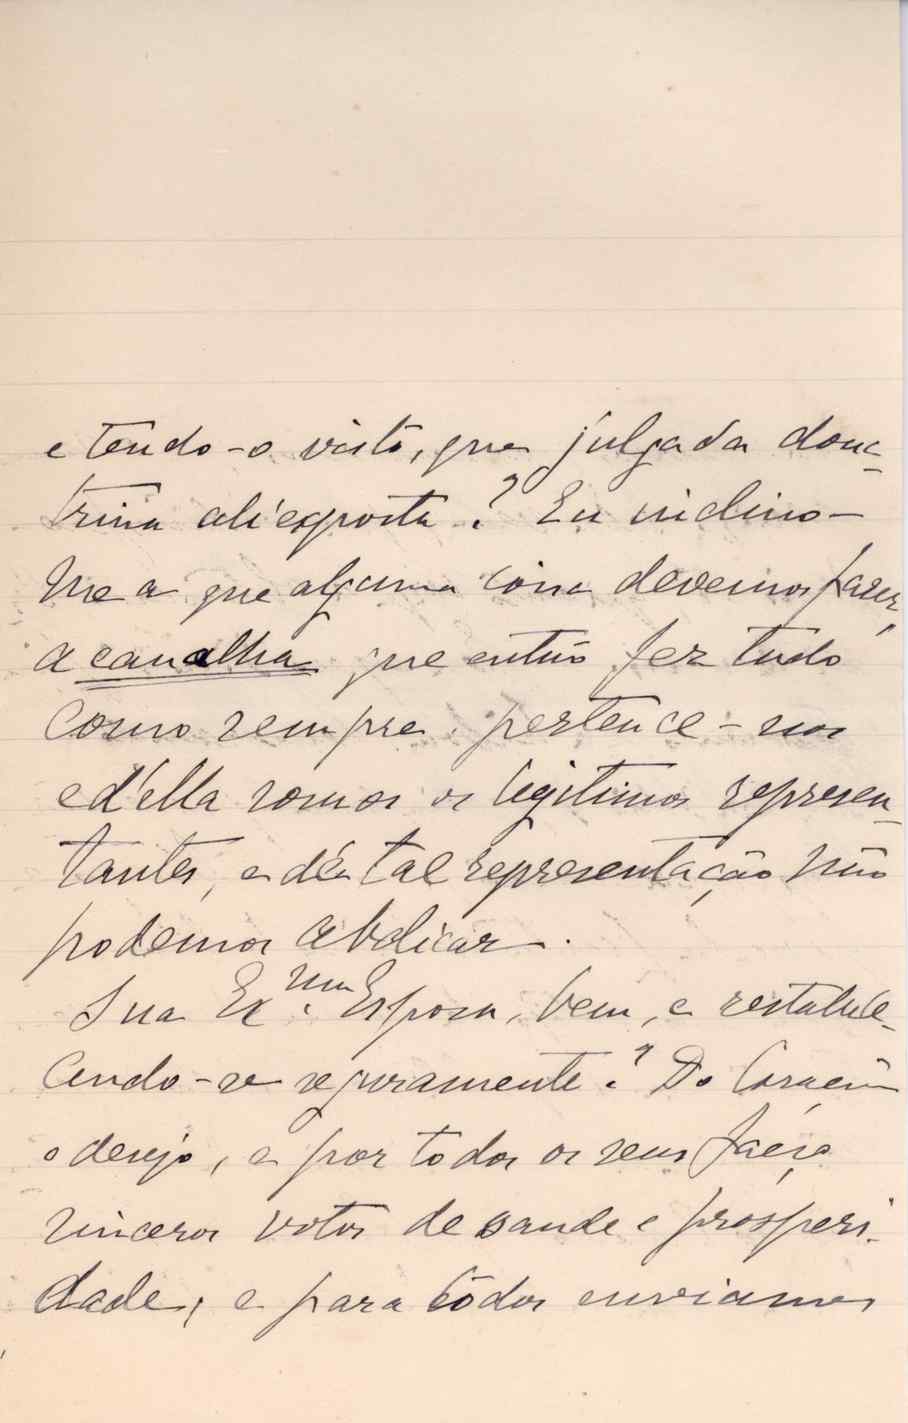 e tendo-o visto, que julga da dou-
trina ali exposta? Eu inclino-
me a que alguma coisa devemos fazer,
a canalha que então fez tudo
como sempre, pertence-nos
e d'ella somos os legitimos represen-
tantes, e de tal representação não
podemos abdicar.
Sua Exma Esposa, bem, e restabele-
cendo-se seguramente? Do Coração
o desejo, e por todos os seus faço
sinceros votos de saude e prosperi-
dade, e para todos enviamos